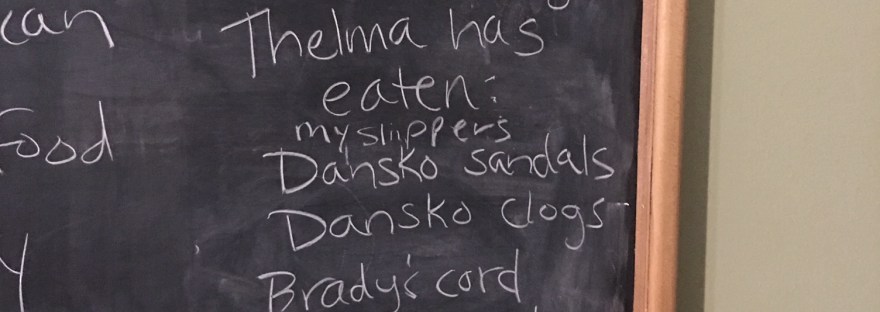 can
Thelma has
eaten:
food
my slippers
Dansko sandals
Dansko clogs
y
Brady's cord